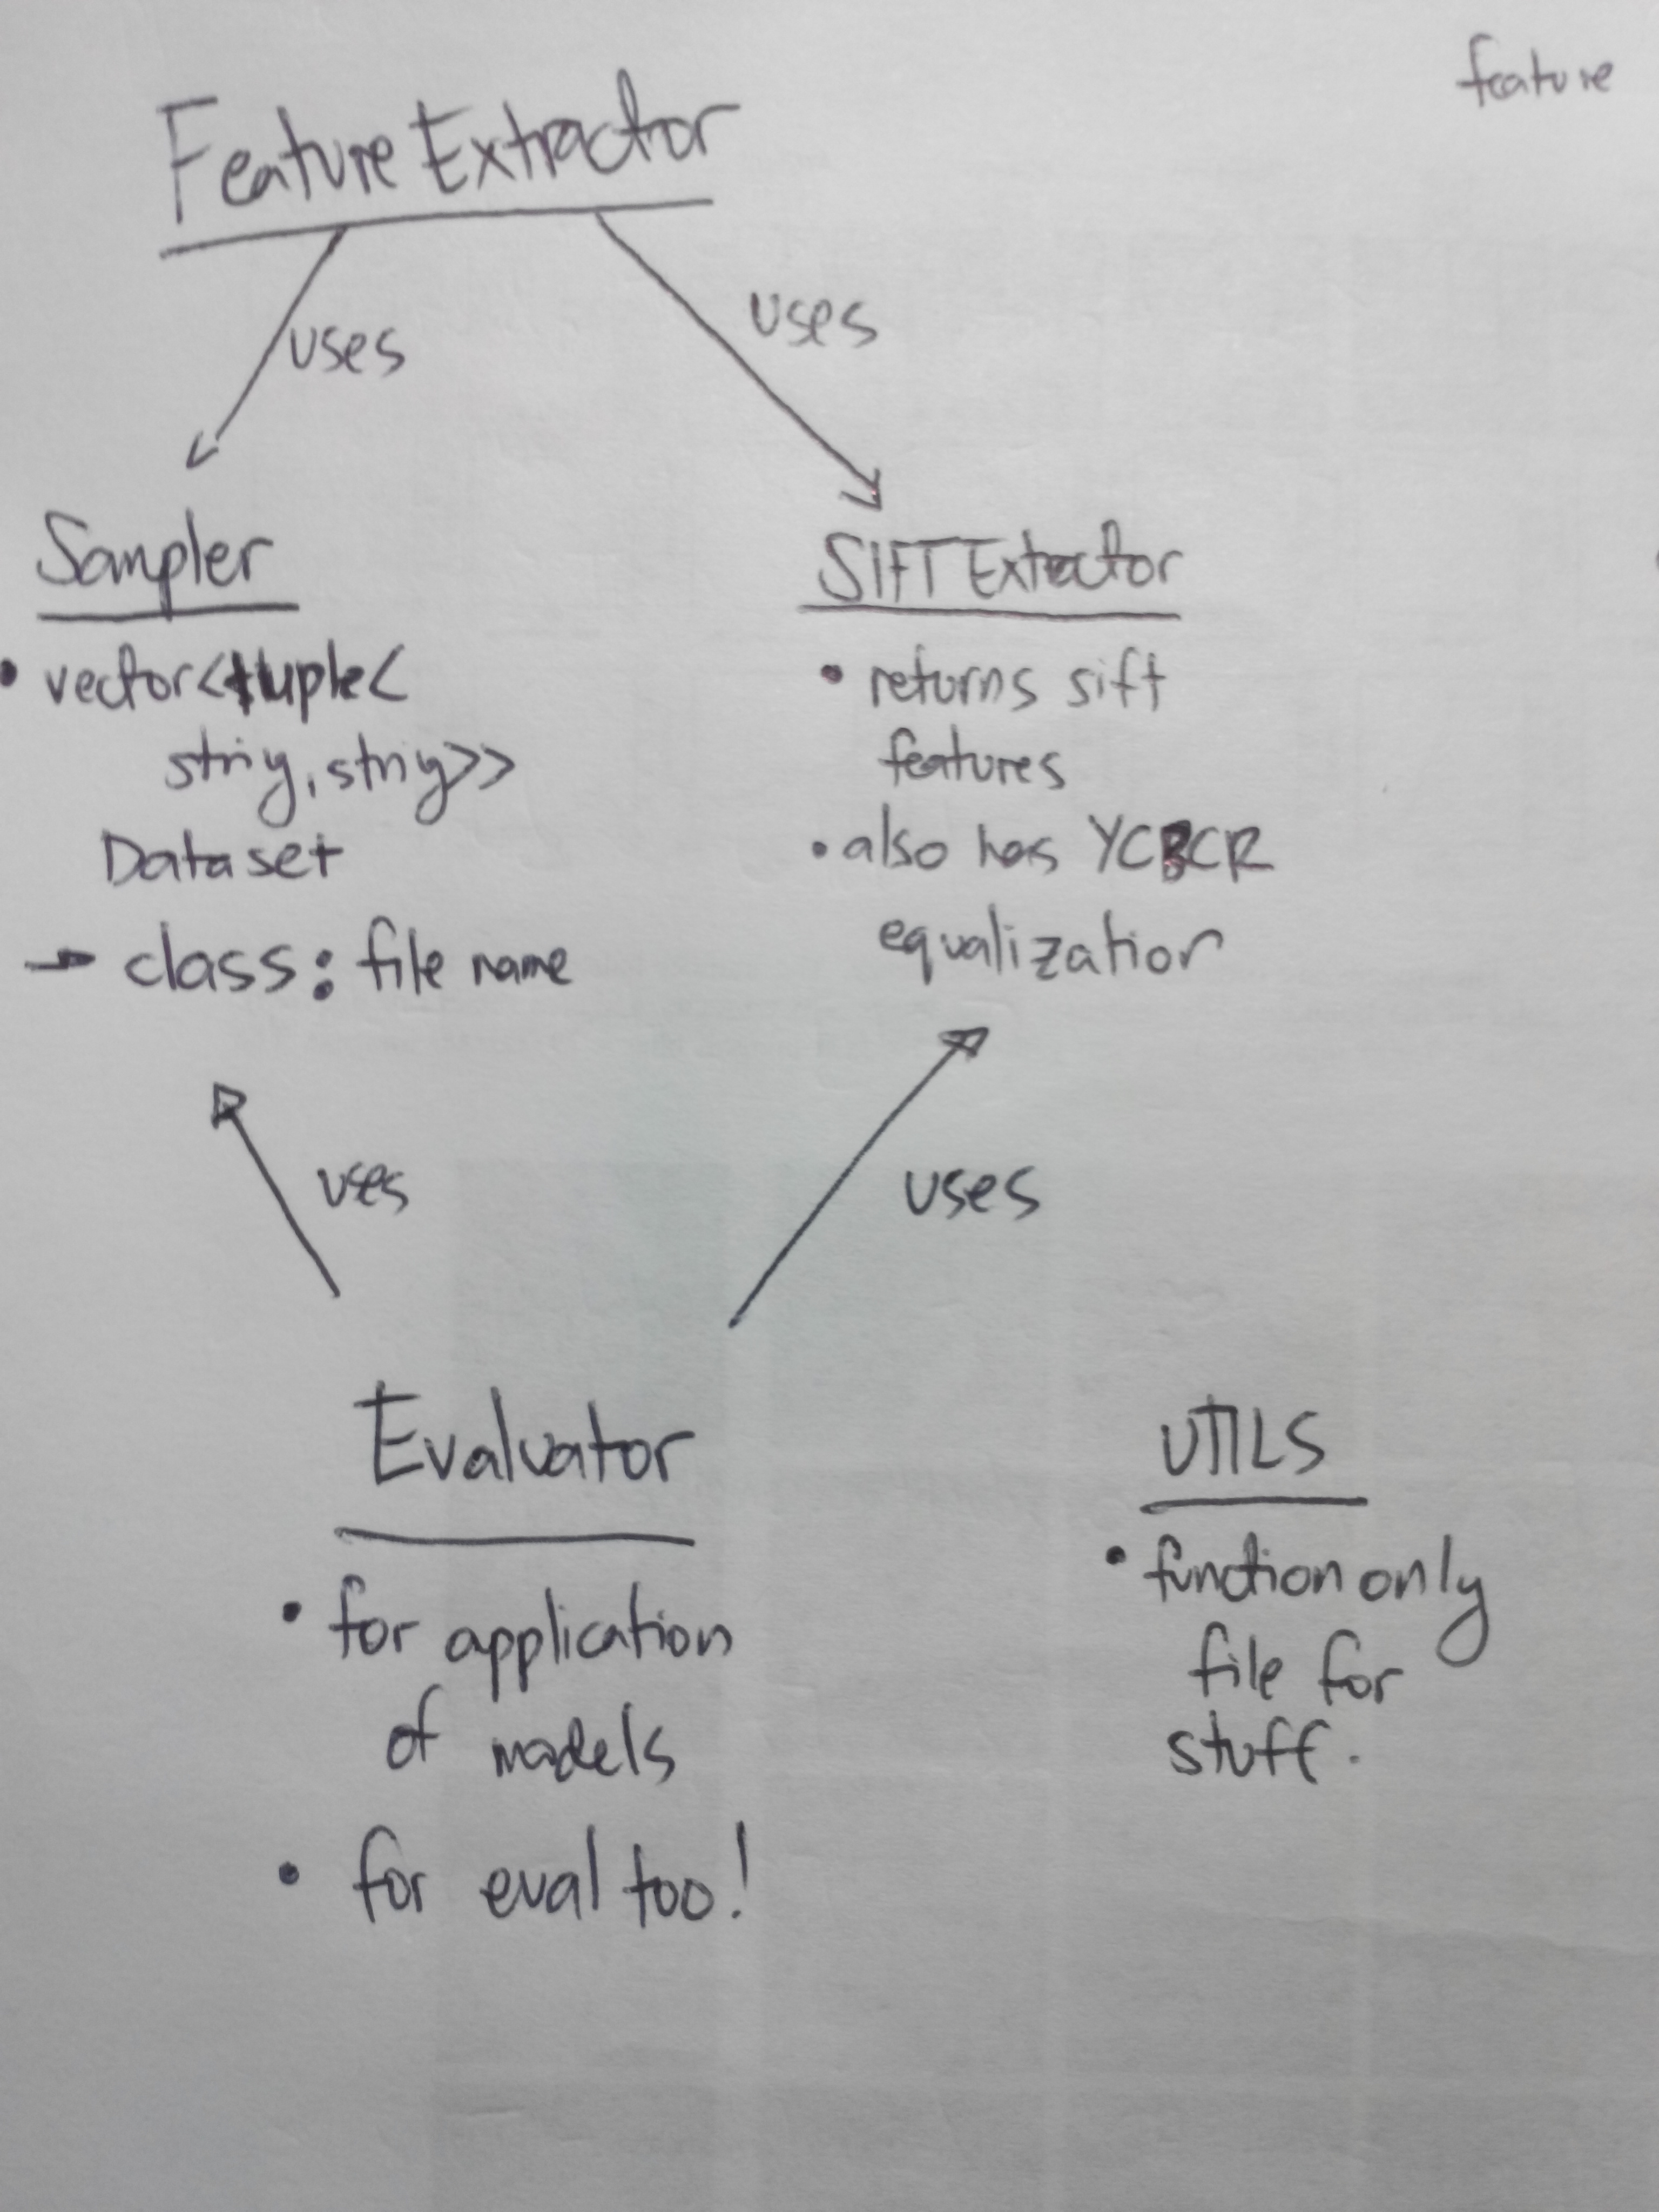 feature
Feature Extractor
uses
uses
Sampler
• vector<tuple<
string, string>>
Dataset
→ class: file name
SIFT Extractor
• returns sift
features
• also has YCBCR
equalization
uses
uses
Evaluator
• for application
of models
• for eval too!
UTILS
• function only
file for
stuff.